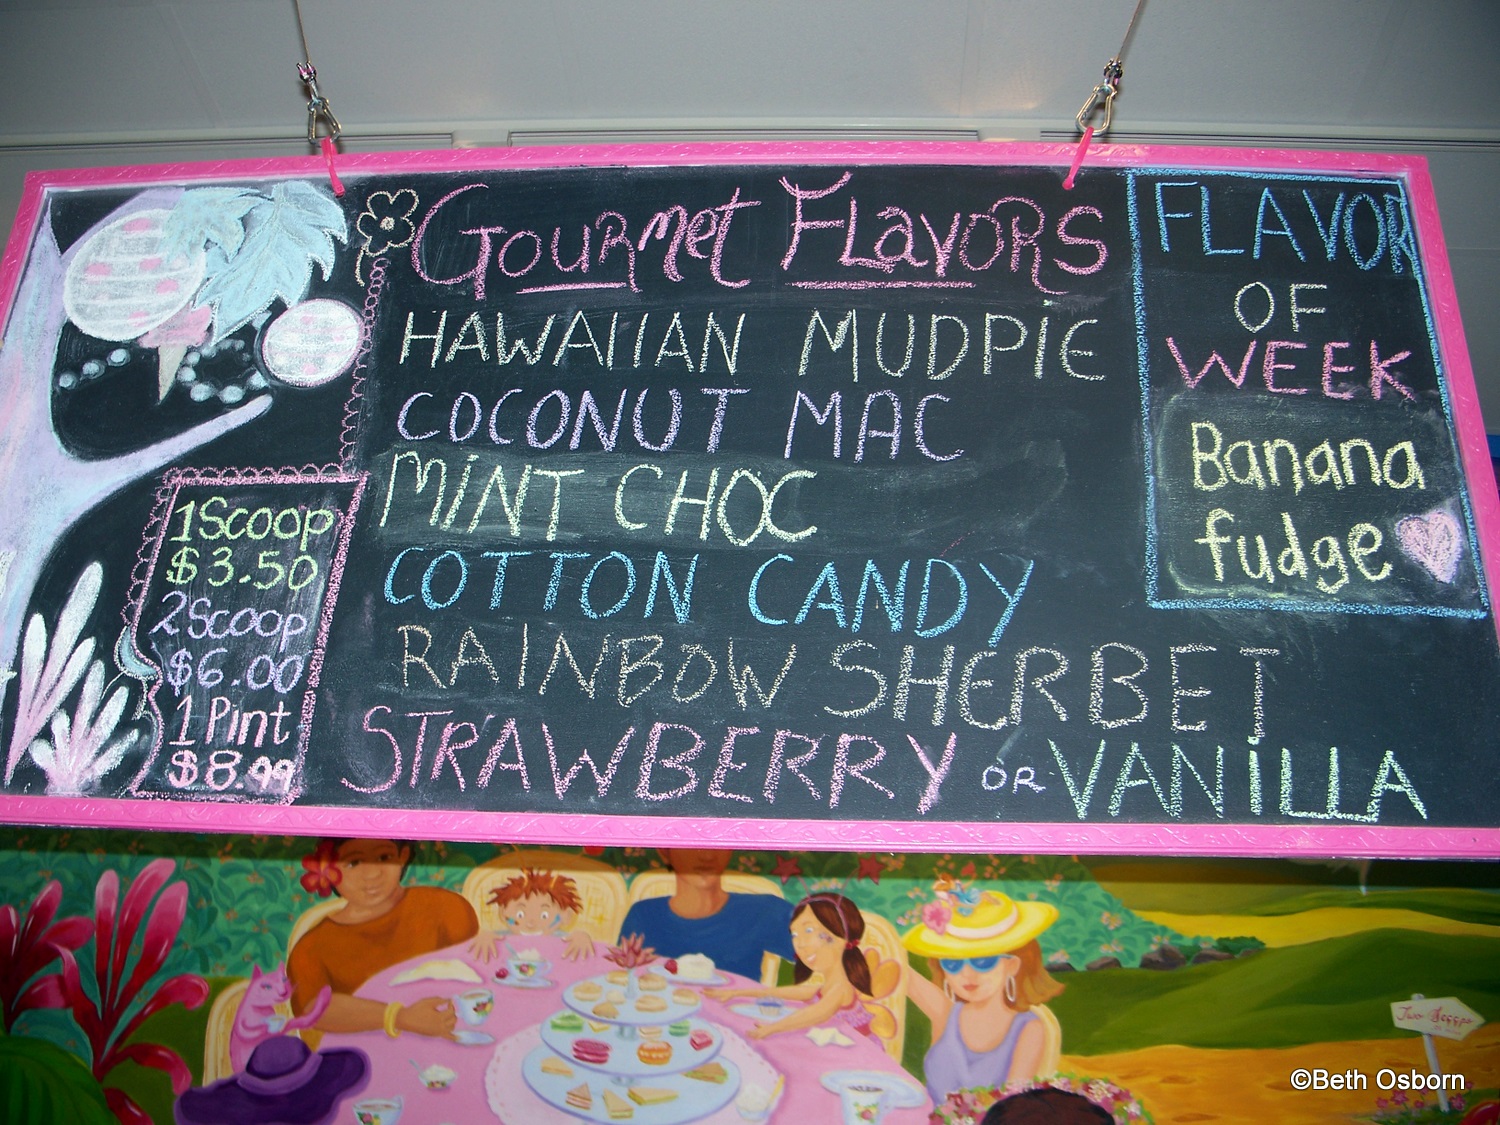 Gourmet Flavors
HAWAIIAN MUDPIE
COCONUT MAC
MINT CHOC
COTTON CANDY
RAINBOW SHERBET
STRAWBERRY OR VANILLA
1 Scoop
$3.50
2 Scoop
$6.00
1 Pint
$8.99
FLAVOR
OF
WEEK
Banana
fudge
Two Scoops
©Beth Osborn